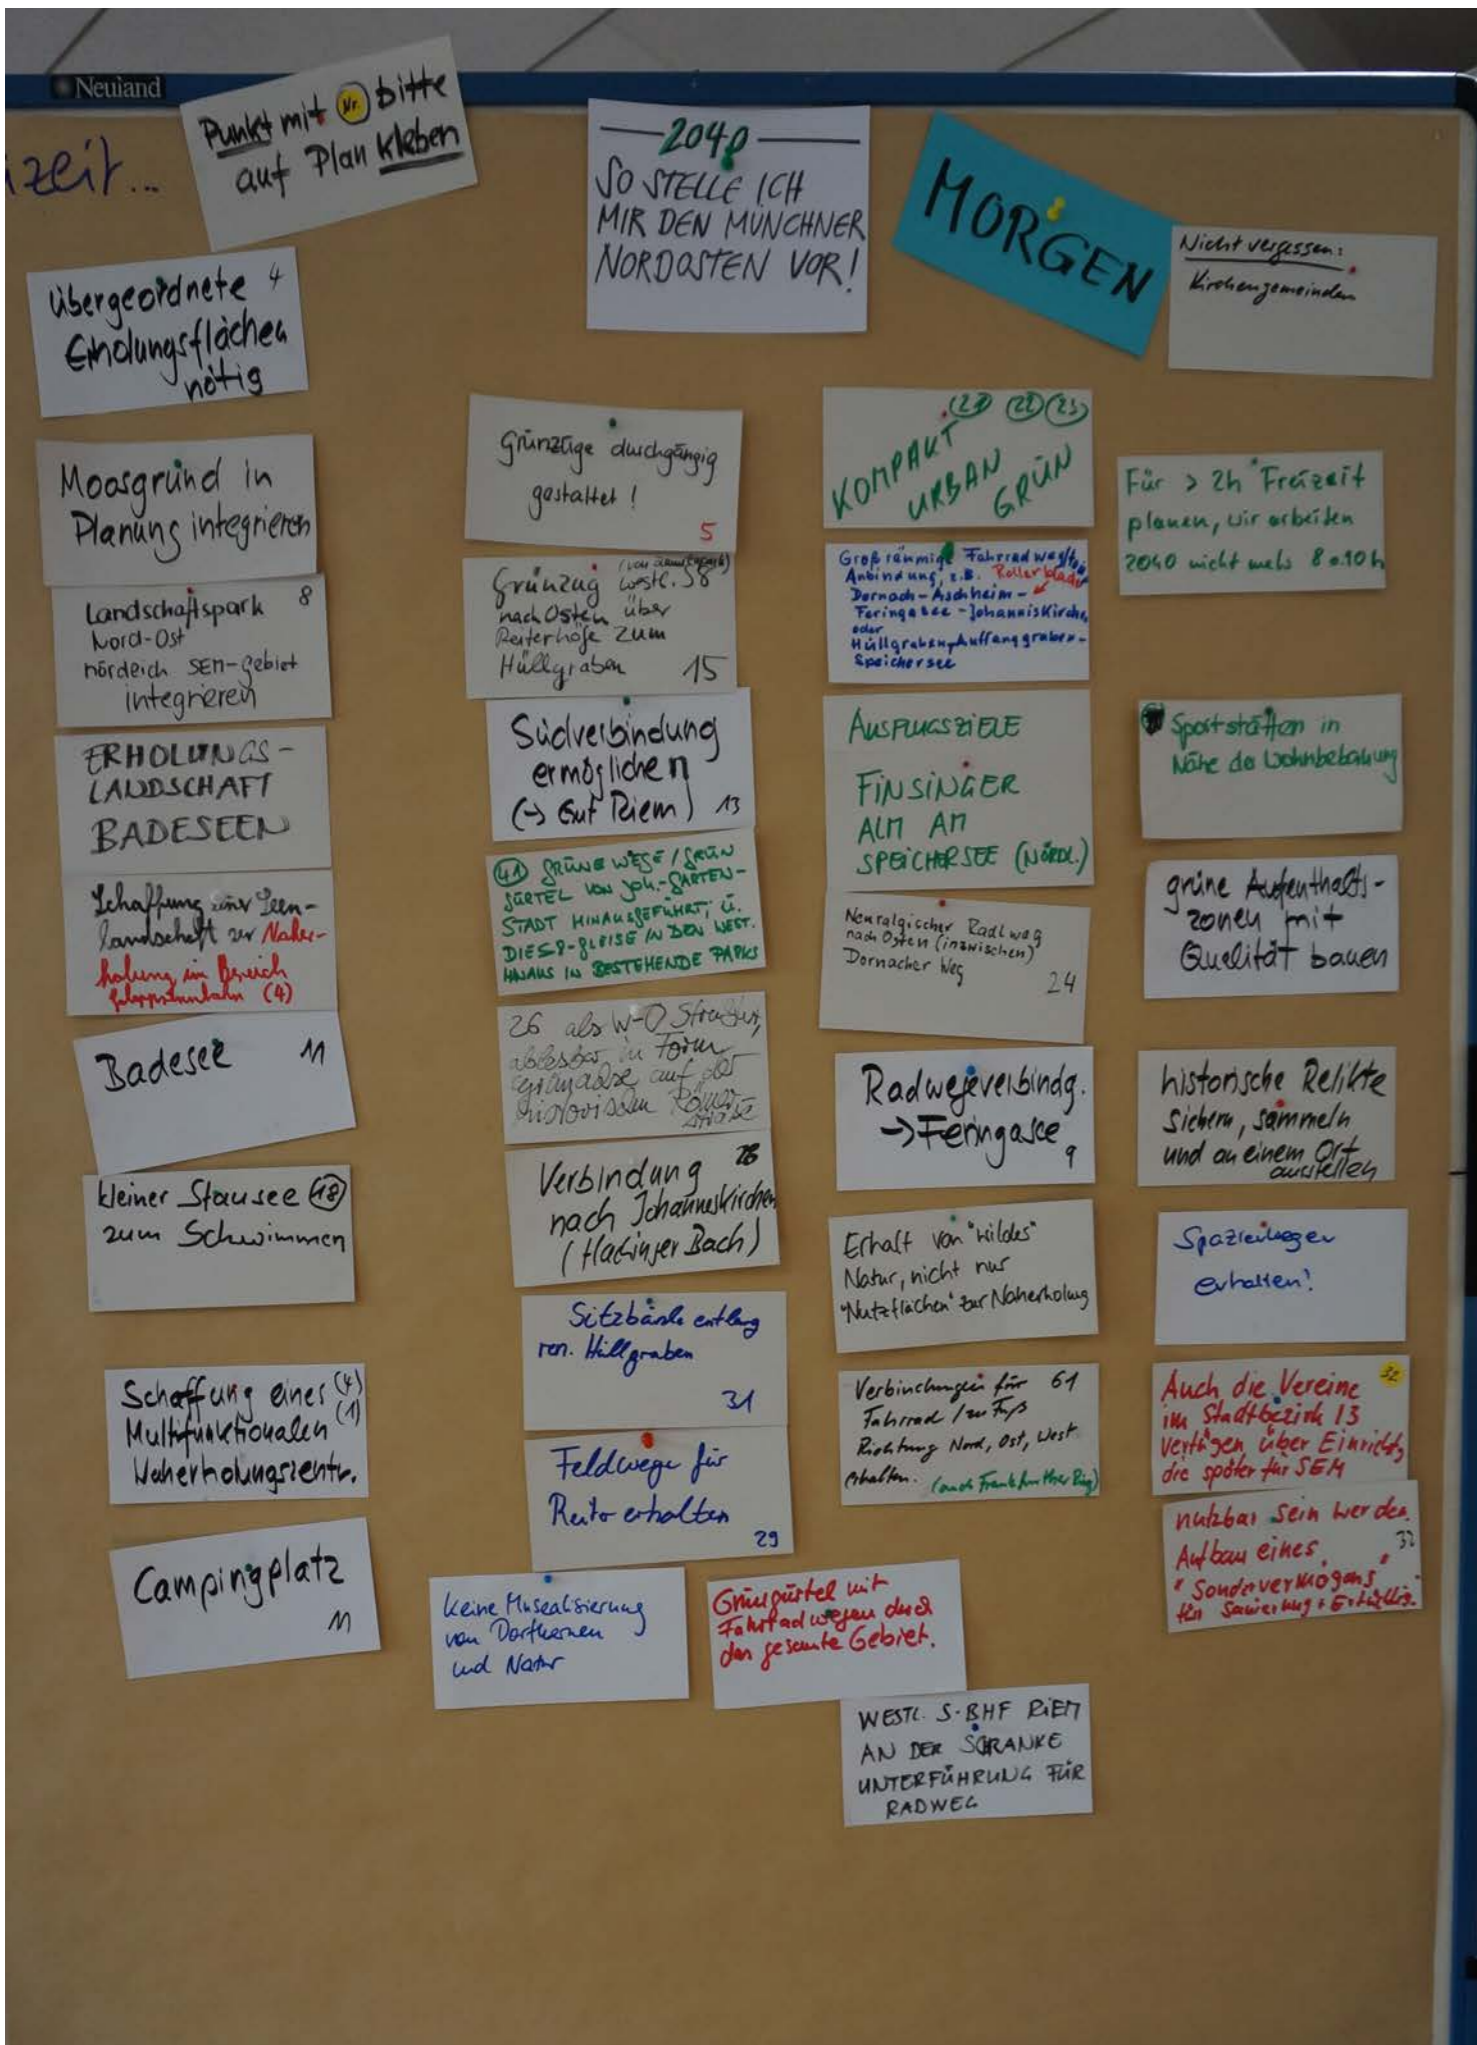 Neuland
zeit...
Punkt mit Nr. bitte
auf Plan kleben
2040
SO STELLE ICH
MIR DEN MÜNCHNER
NORDOSTEN VOR!
MORGEN
Nicht vergessen:
Kirchengemeinden
Übergeordnete 4
Erholungsflächen
nötig
Moosgrund in
Planung integrieren
Landschaftspark 8
Nord-Ost
nördlich SEM-Gebiet
integrieren
ERHOLUNGS-
LANDSCHAFT
BADESEEN
Schaffung einer Seen-
landschaft zur Naher-
holung im Bereich
Galopprennbahn (4)
Badesee 11
kleiner Stausee 18
zum Schwimmen
Schaffung eines (4)
Multifunktionalen (1)
Naherholungszentr.
Campingplatz
11
Grünzüge durchgängig
gestaltet!
5
Grünzug westl. S8
nach Osten über
Reiterhöfe zum
Hüllgraben 15
Südverbindung
ermöglichen
(→ Gut Riem) 13
41 GRÜNE WEGE / GRÜN
GÜRTEL VON JOH.-GARTEN-
STADT HINAUSGEFÜHRT, Ü.
DIE S-8-GLEISE IN DEN WEST.
HINAUS IN BESTEHENDE PARKS
26 als W-O Struktur,
ablesbar in Form
Grünachse auf der
historischen Römer-
straße
Verbindung 26
nach Johanneskirchen
(Hachinger Bach)
Sitzbänke entlang
ren. Hüllgraben
31
Feldwege für
Reiter erhalten
29
keine Musealisierung
von Dorfkernen
und Natur
Grüngürtel mit
Fahrradwegen durch
das gesamte Gebiet.
21 22 23
KOMPAKT
URBAN
GRÜN
Großräumige Fahrradwege
Anbindung, z.B. Rollerblader
Dornach-Aschheim-
Feringasee-Johanniskirchen
oder
Hüllgraben, Auffanggraben-
Speichersee
AUSFLUGSZIELE
FINSINGER
ALM AM
SPEICHERSEE (NÖRDL.)
Neuralgischer Radlweg
nach Osten (inzwischen)
Dornacher Weg
24
Radwegeverbindg.
→ Feringasee
9
Erhalt von "wilder"
Natur, nicht nur
"Nutzflächen" zur Naherholung
Verbindungen für 61
Fahrrad / zu Fuß
Richtung Nord, Ost, West
erhalten. (auch Frankfurther Ring)
WESTL. S-BHF RIEM
AN DER SCHRANKE
UNTERFÜHRUNG FÜR
RADWEG
Für > 2h Freizeit
planen, wir arbeiten
2040 nicht mehr 8 o. 10 h
Sportstätten in
Nähe der Wohnbebauung
grüne Aufenthalts-
zonen mit
Qualität bauen
historische Relikte
sichern, sammeln
und an einem Ort
ausstellen
Spazierwege
erhalten!
Auch die Vereine 32
im Stadtbezirk 13
verfügen über Einrichtg
die später für SEM
nutzbar sein werden.
Aufbau eines 32
"Sondervermögens"
für Sanierung + Ertüchtig.